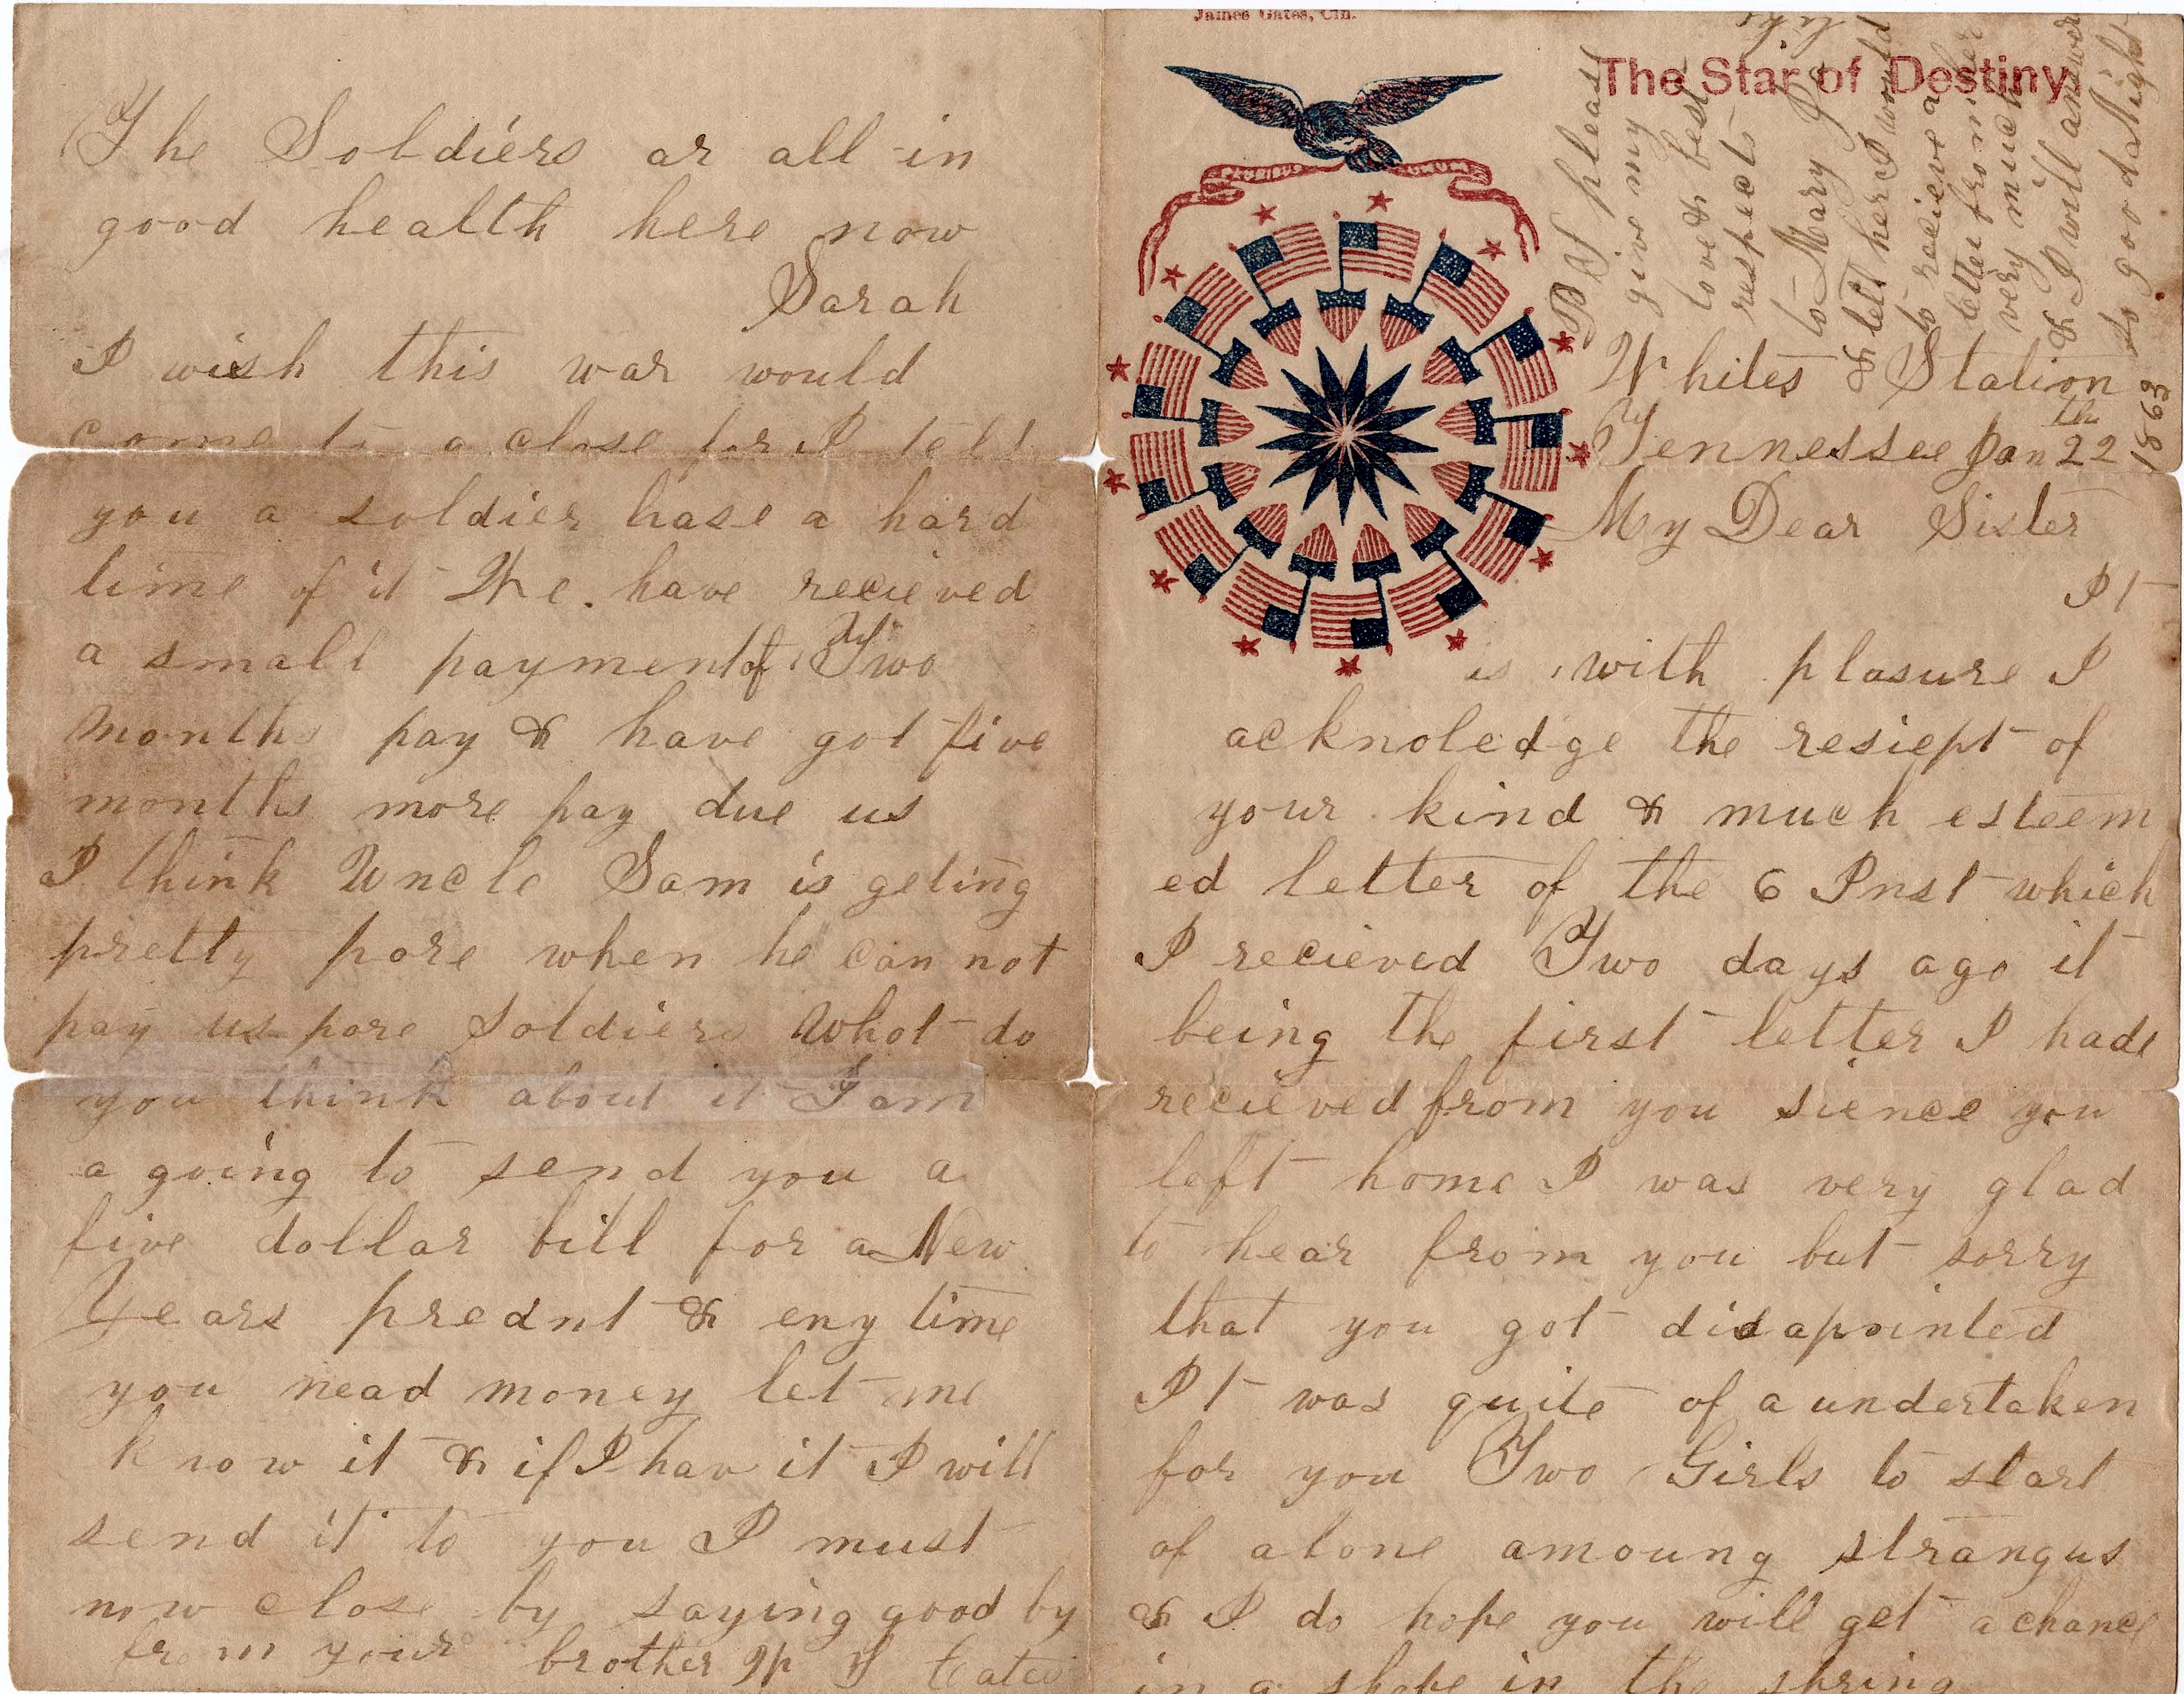 James Gates, Cin.
The Star of Destiny
PLURIBUS UNUM
Whites Station
Tennessee Jan 22th 1863
My Dear Sister
It
is with plasure I
acknoledge the resiept of
your kind & much esteem
ed letter of the 6 Inst which
I recieved Two days ago it
being the first letter I hade
recieved from you sience you
left home I was very glad
to hear from you but sorry
that you got disapointed
It was quite of a undertaken
for you Two Girls to start
of alone amoung strangus
& I do hope you will get a chance
in a shope in the spring
The Soldiers ar all in
good health here now
Sarah
I wish this war would
come to a close for I tell
you a soldier hase a hard
time of it We have recieved
a small payment of Two
months pay & have got five
months more pay due us
I think Uncle Sam is geting
pretty pore when he can not
pay us pore Soldiers What do
you think about it I am
a going to send you a
five dollar bill for a New
Years presnt & eny time
you nead money let me
know it & if I hav it I will
send it to you I must
now close by saying good by
from your brother
PS please
give my
love & best
respects
to Mary
& tell her I would like
to recieve a
letter from her
very much
& I will answer
so good Night